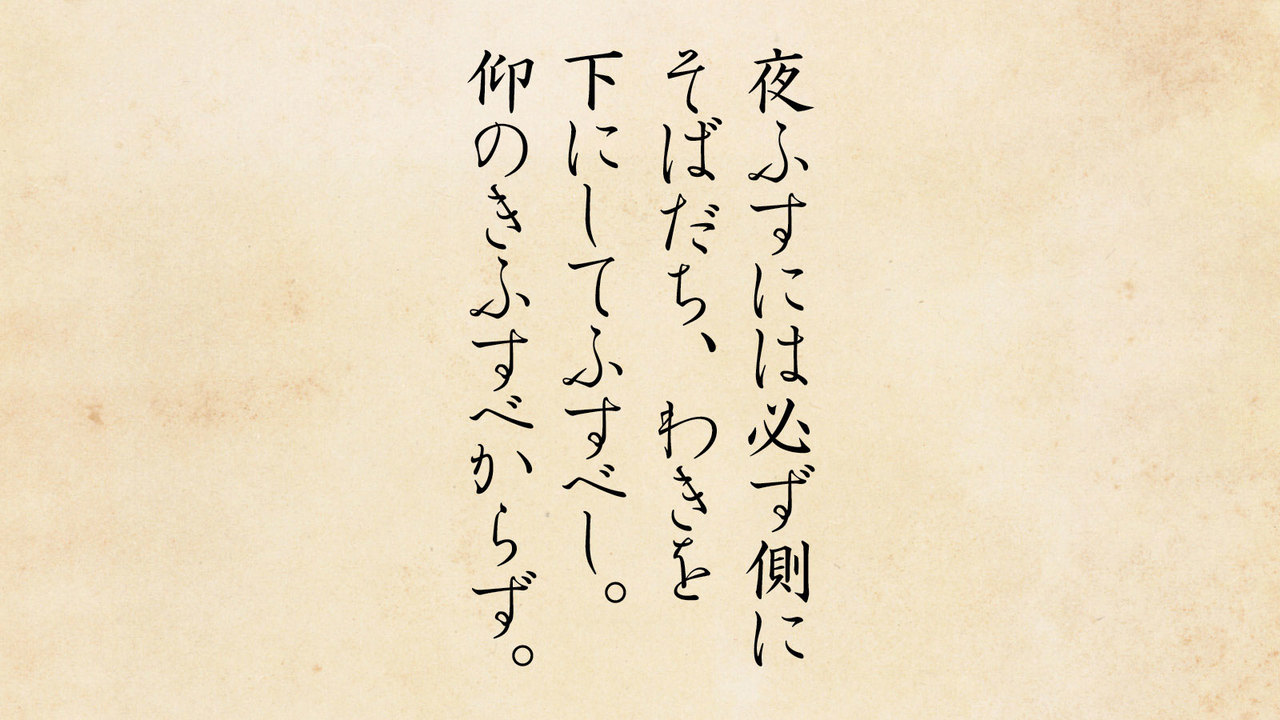 夜ふすには必ず側に
そばだち、わきを
下にしてふすべし。
仰のきふすべからず。